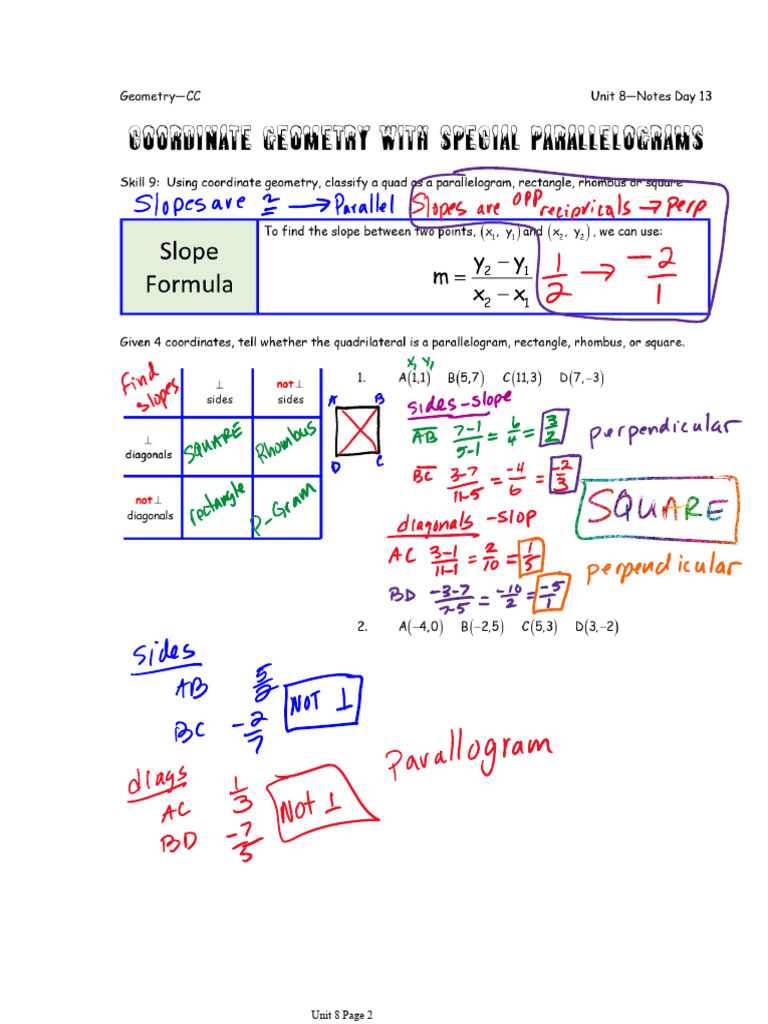 Geometry—CC Unit 8—Notes Day 13
COORDINATE GEOMETRY WITH SPECIAL PARALLELOGRAMS
Skill 9: Using coordinate geometry, classify a quad as a parallelogram, rectangle, rhombus or square
Slopes are = → Parallel Slopes are opp recipricals → perp
Slope Formula
To find the slope between two points, (x₁, y₁) and (x₂, y₂), we can use:
m = (y₂ − y₁)/(x₂ − x₁)
1/2 → −2/1
Given 4 coordinates, tell whether the quadrilateral is a parallelogram, rectangle, rhombus, or square.
Find slopes
⊥ sides
not ⊥ sides
⊥ diagonals
SQUARE
Rhombus
not ⊥ diagonals
rectangle
P-Gram
A B
D C
x₁ y₁
1. A(1,1) B(5,7) C(11,3) D(7,−3)
sides-slope
AB 7-1/5-1 = 6/4 = 3/2
perpendicular
BC 3-7/11-5 = -4/6 = -2/3
SQUARE
diagonals -slop
AC 3-1/11-1 = 2/10 = 1/5
perpendicular
BD -3-7/7-5 = -10/2 = -5/1
2. A(−4,0) B(−2,5) C(5,3) D(3,−2)
sides
AB 5/2
NOT ⊥
BC -2/7
Parallogram
diags
AC 1/3
Not ⊥
BD -7/5
Unit 8 Page 2